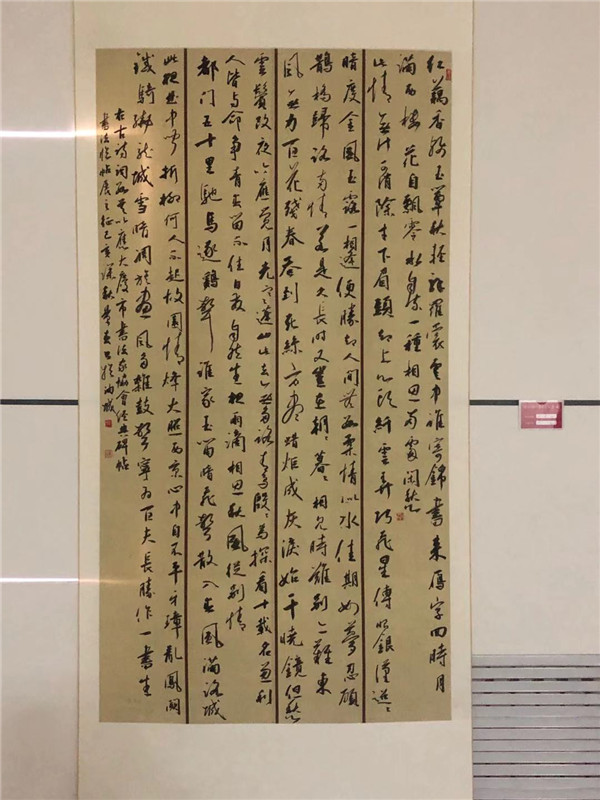 紅藕香殘玉簟秋輕解羅裳雲中誰寄錦書來雁字回時月
滿西樓花自飄零水自流一種相思兩處閑愁
此情無計可消除才下眉頭卻上心頭纖雲弄巧飛星傳恨銀漢迢迢
暗度金風玉露一相逢便勝卻人間無數柔情似水佳期如夢忍顧
鵲橋歸路兩情若是久長時又豈在朝朝暮暮相見時難別亦難東
風無力百花殘春蠶到死絲方盡蠟炬成灰淚始干曉鏡但愁
雲鬢改夜吟應覺月光寒蓬山此去無多路青鳥殷勤為探看十載名兼利
人皆與命爭青春留不住白髮自然生夜雨滴相思秋風從別情
都門五十里馳馬逐雞聲誰家玉笛暗飛聲散入春風滿洛城
此夜曲中聞折柳何人不起故園情烽火照西京心中自不平牙璋辭鳳闕
鐵騎繞龍城雪暗凋旗畫風多雜鼓聲寧為百夫長勝作一書生
右古詩詞數首以應大慶市書法家協會經典碑帖
書法臨帖展之征己亥深秋於油城